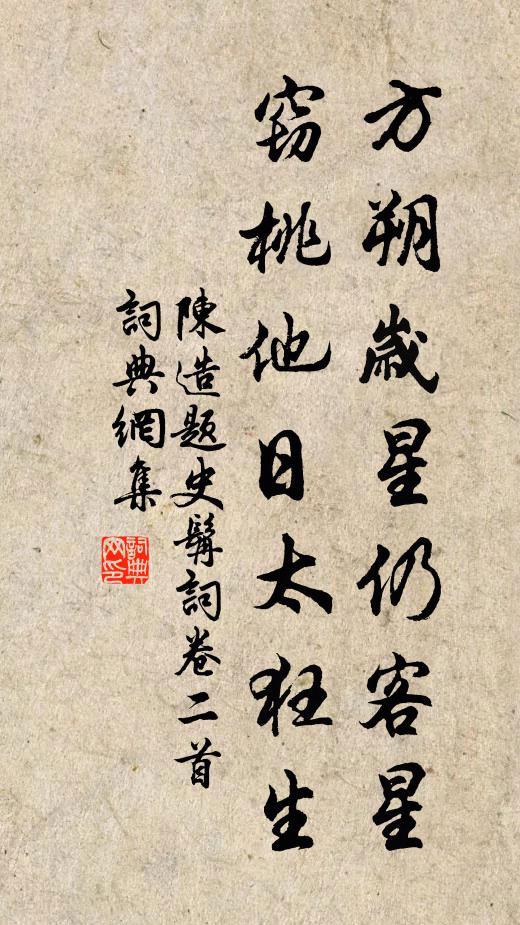 方朔歲星仍客星
竊桃他日太狂生
陳造題史髯詞卷二首
詞典網集
詞典网印